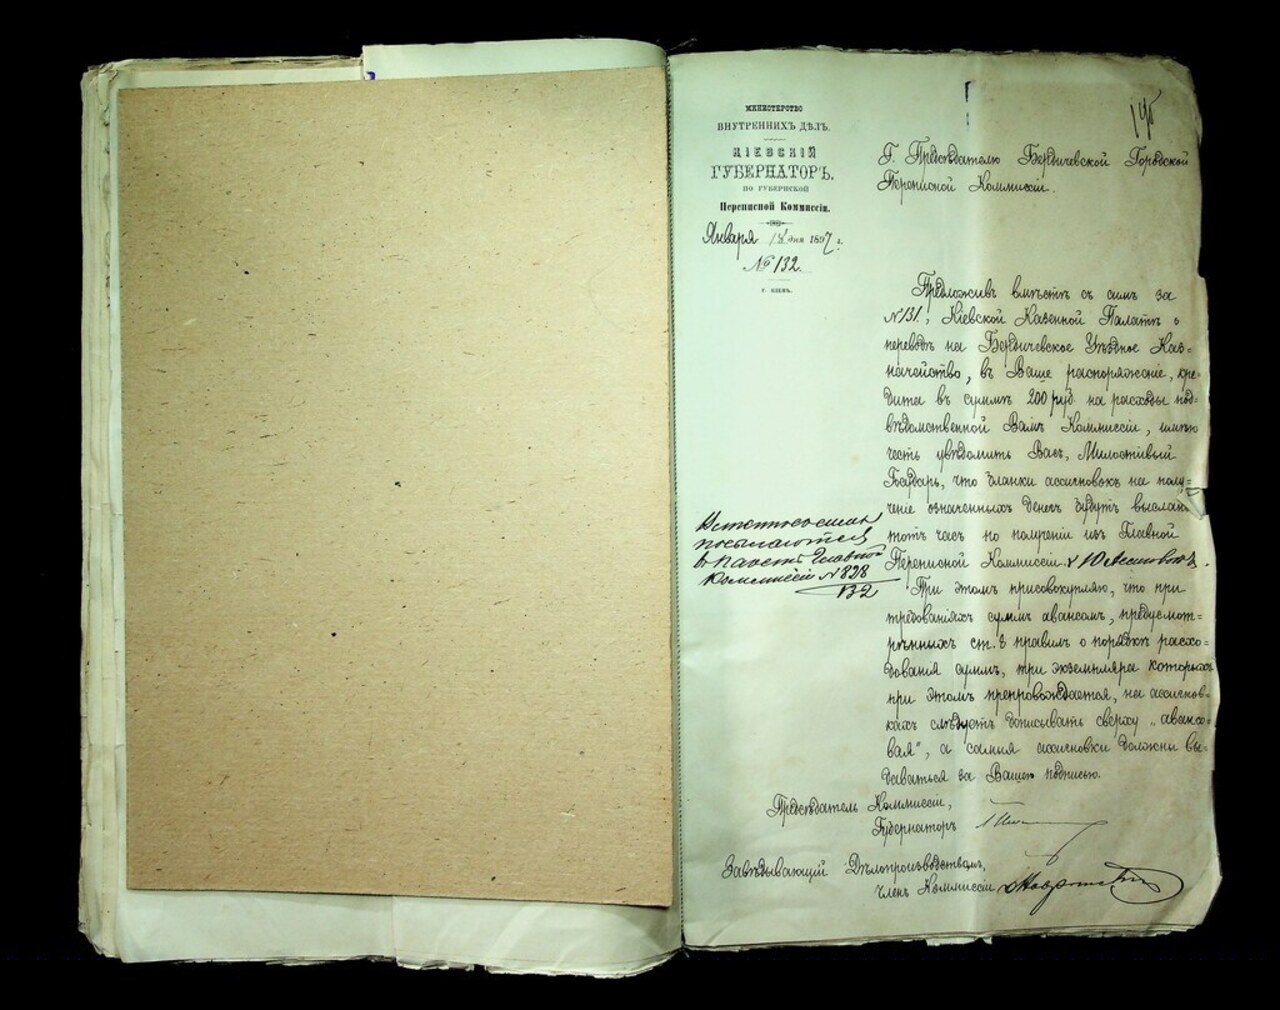 195
МИНИСТЕРСТВО
ВНУТРЕННИХЪ ДѢЛЪ.
КІЕВСКІЙ
ГУБЕРНАТОРЪ.
ПО ГУБЕРНСКОЙ
Переписной Коммиссіи.
Января 18 дня 1897 г.
№ 132.
г. КІЕВЪ.
Г. Предсѣдателю Бердичевской Городской
Переписной Коммиссіи.
Предложивъ вмѣстѣ съ симъ за
№ 131, Кіевской Казенной Палатѣ о
переводѣ на Бердичевское Уѣздное Каз-
начейство, въ Ваше распоряженіе, кре-
дита въ суммѣ 200 руб. на расходы под-
вѣдомственной Вамъ Коммиссіи, имѣю
честь увѣдомить Васъ, Милостивый
Государь, что бланки ассигновокъ на полу-
ченіе означенныхъ денегъ будутъ высланы
тотъ часъ по полученіи изъ Главной
Переписной Коммиссіи.
посылаются
въ пакетѣ Главной
Коммиссіи № 828
132
При этомъ присовокупляю, что при
требованіяхъ суммъ авансомъ, предусмот-
рѣнныхъ ст. 8 правилъ о порядкѣ расхо-
дованія суммъ, три экземпляра которыхъ
при этомъ препровождается, на ассигнов-
кахъ слѣдуетъ дописывать сверху „авансо-
вая", а самыя ассигновки должны вы-
даваться за Вашею подписью.
Предсѣдатель Коммиссіи,
Губернаторъ
Завѣдывающій Дѣлопроизводствомъ,
Членъ Коммиссіи